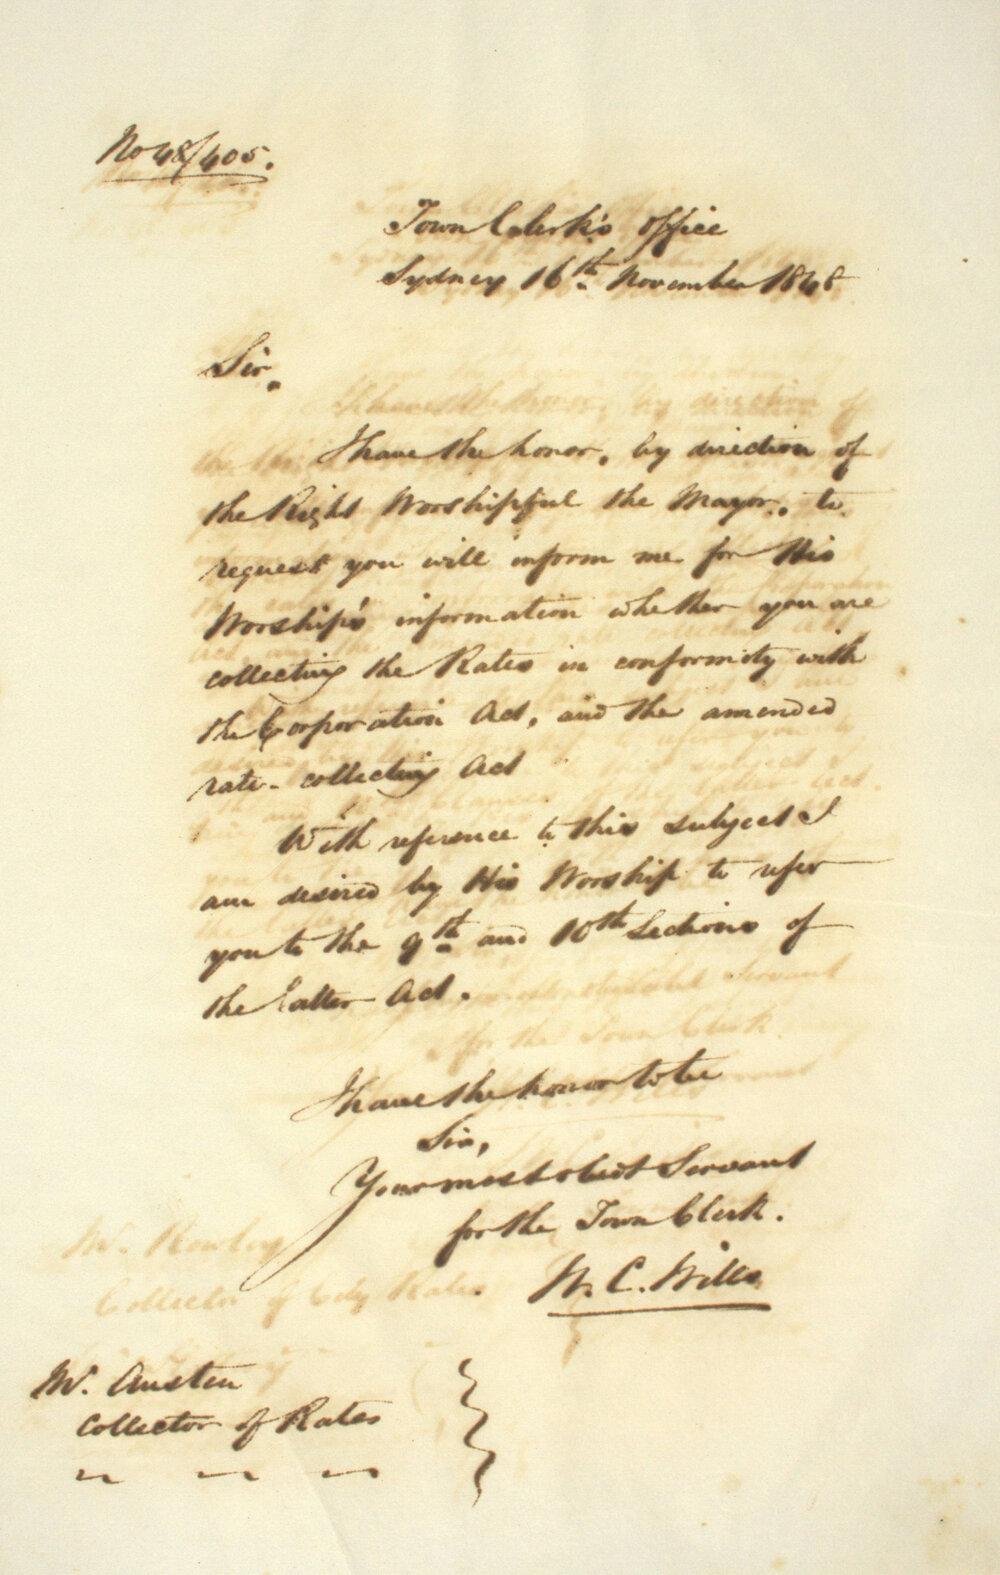 No 48/405.
Town Clerk's Office
Sydney 16th November 1848
Sir,
I have the honor, by direction of
the Right Worshipful the Mayor, to
request you will inform me for His
Worship's information whether you are
collecting the Rates in conformity with
the Corporation Act, and the amended
rate-collecting Act
With reference to this subject I
am desired by His Worship to refer
you to the 9th and 10th Sections of
the latter Act.
I have the honor to be
Sir,
Your most obedt Servant
for the Town Clerk.
W. C. Wills
Mr. Rowley
Collector of City Rates
Mr. Austen
Collector of Rates